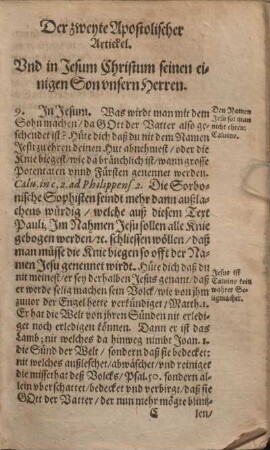 Der zweyte Apostolischer
Artickel.
Vnd in Jesum Christum seinen ei-
nigen Son vnsern Herren.
9. In Jesum. Was wirdt man mit dem
Sohn machen / da GOtt der Vatter also ge-
schendet ist? Hüte dich daß du nit dem Namen
Jesu zu ehren deinen Hut abnemest / oder die
Knie biegest / wie da bräuchlich ist / wann grosse
Potentaten vnnd Fürsten genennet werden.
Calu. in c. 2. ad Philippens. 2. Die Sorbo-
nische Sophisten seindt mehr dann außla-
chens würdig / welche auß diesem Text
Pauli, Im Nahmen Jesu sollen alle Knie
gebogen werden / ꝛc. schliessen wöllen / daß
man müsse die Knie biegen so offt der Na-
men Jesu genennet wirdt. Hüte dich daß du
nit meinest / er sey derhalben Jesus genant / daß
er werde selig machen sein Volck / wie von jhm
zuuor der Engel hette verkündiget / Matth. 1.
Er hat die Welt von jhren Sünden nit erledi-
get noch erledigen können. Dann er ist das
Lamb: nit welches da hinweg nimbt Joan. 1.
die Sünd der Welt / sondern daß sie bedecket:
nit welches außleschet / abwäschet / vnd reiniget
die missethat deß Volcks / Psal. 50. sondern al-
lein vberschattet / bedecket vnd verbirgt / daß sie
GOtt der Vatter / der nun mehr mögte blintz-
C len /
Den Namen
Jesu sol man
nicht ehren
Caluino.
Jesus ist
Caluino kein
wahrer Se-
ligmacher.